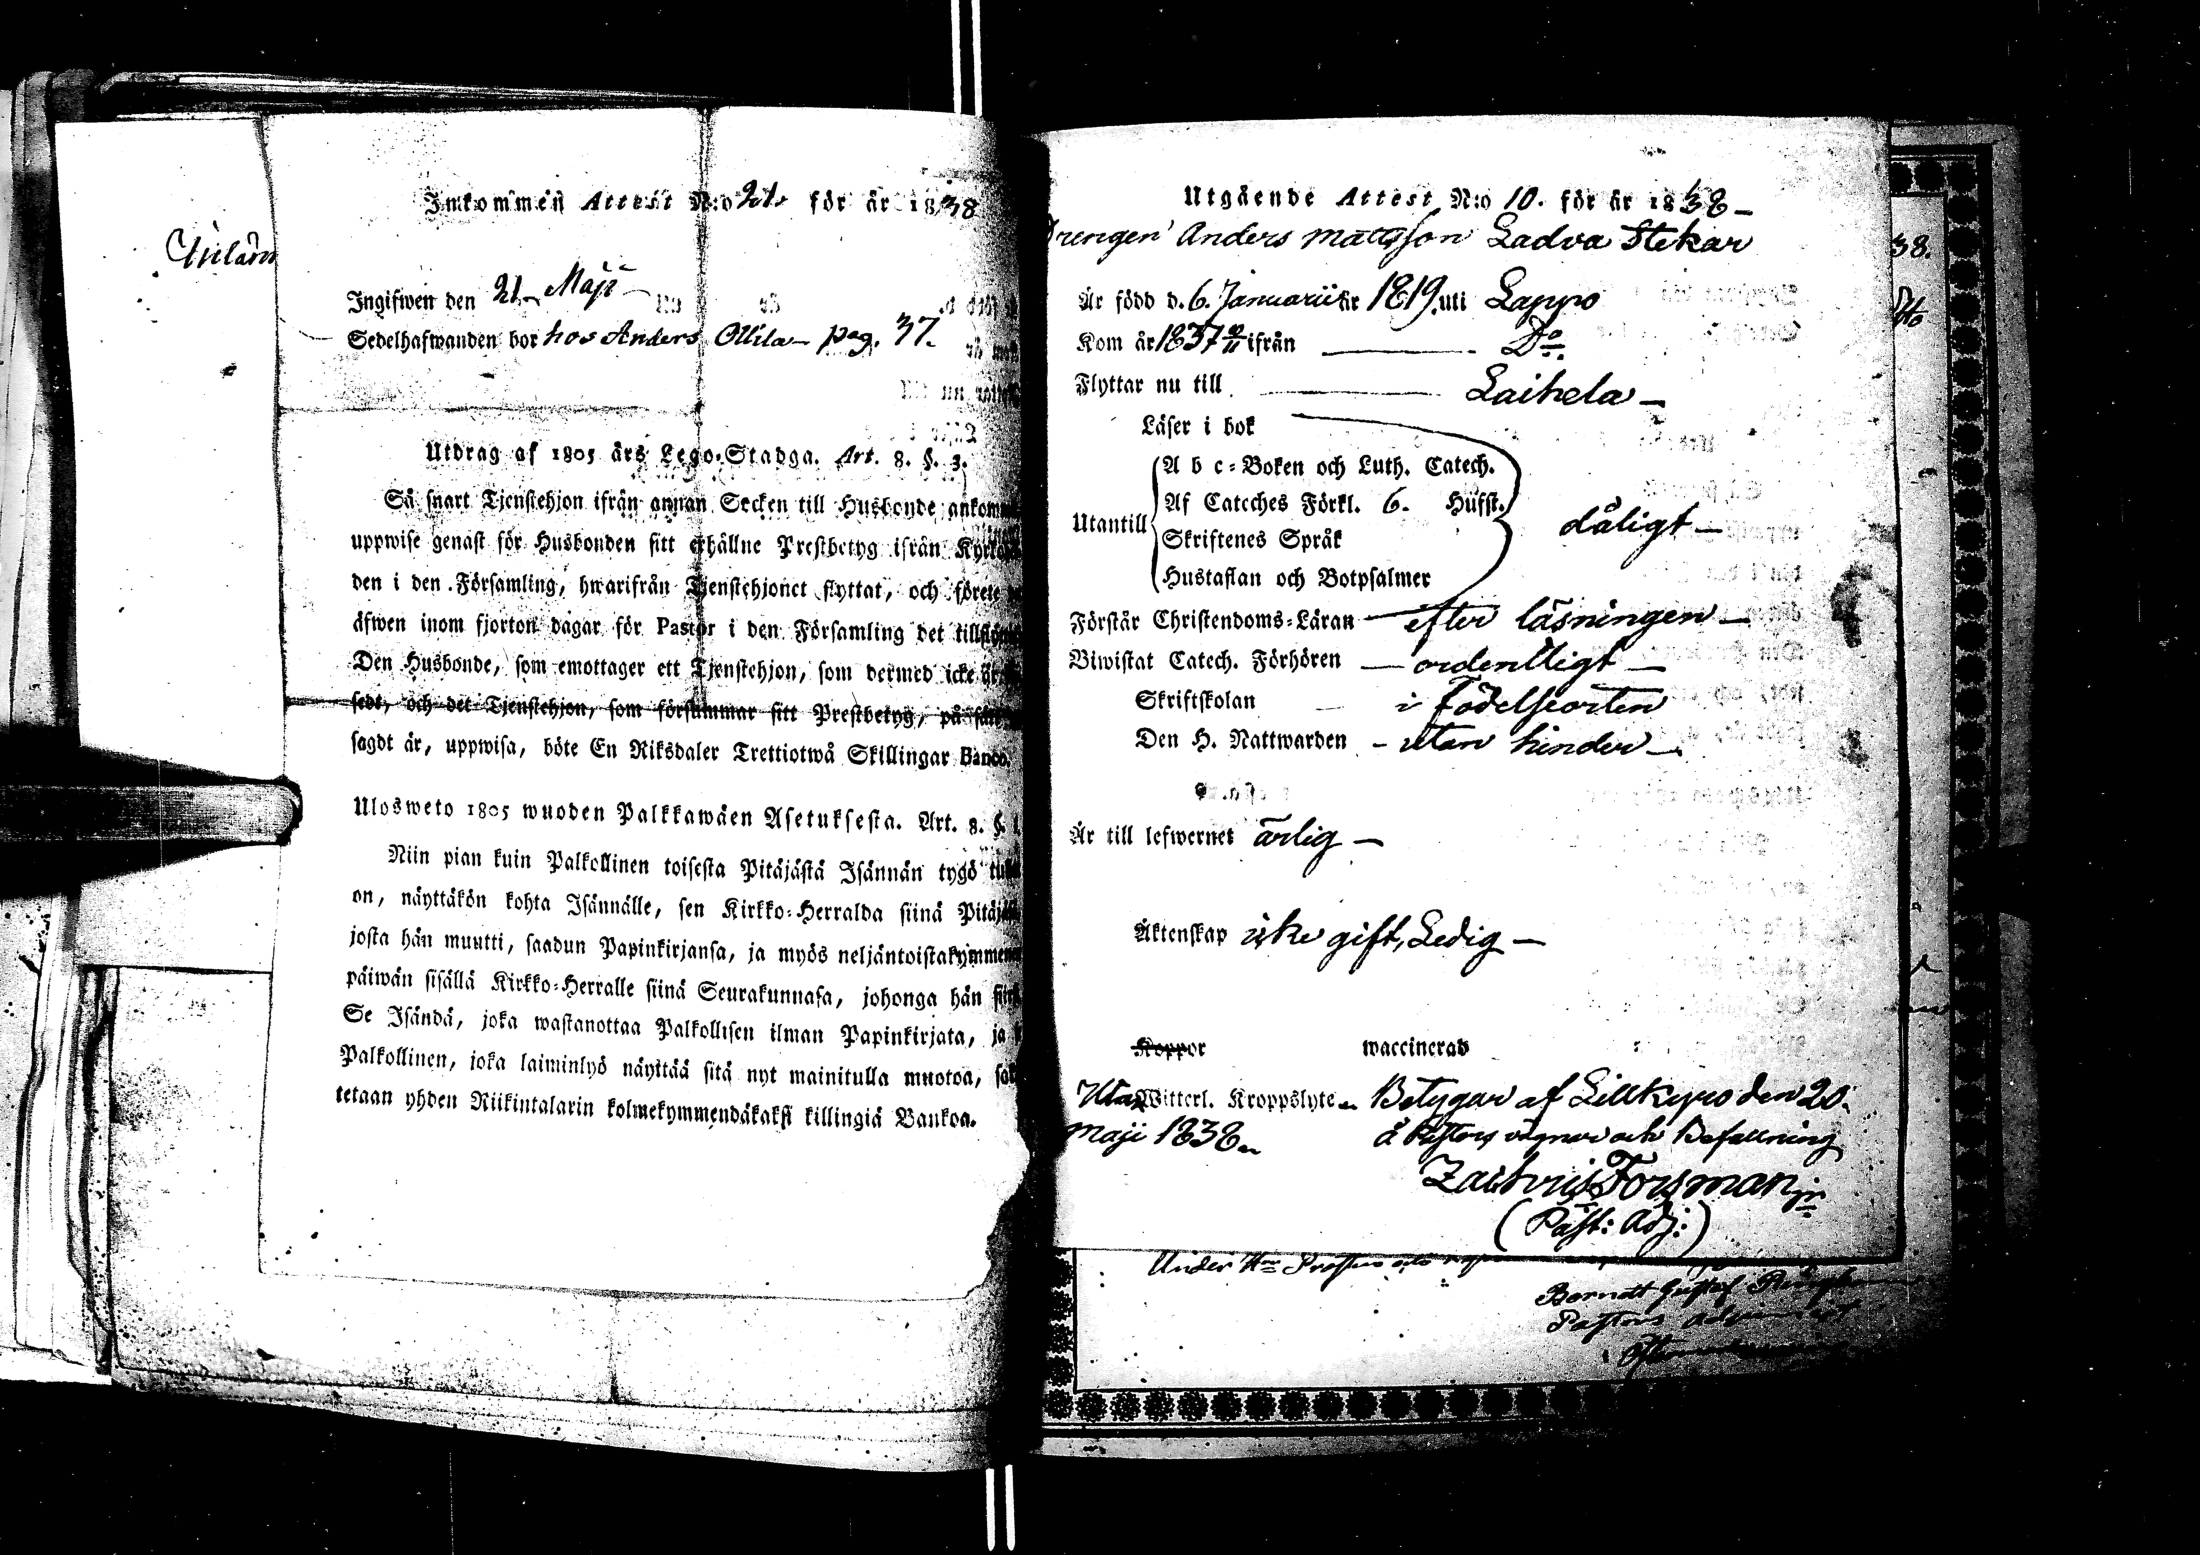 Inkommen Attest N:o 21. för år 1838
Ingifwen den 21 Maji
Sedelhafwanden bor hos Anders Ollila pag. 37.
Utdrag af 1805 års Lego-Stadga. Art. 8. §. 3.
Så snart Tjenstehjon ifrån annan Socken till Husbonde
uppwise genast för Husbonden sitt erhållne Prestbetyg ifrån
den i den Församling, hwarifrån Tjenstehjonet flyttat, och förete
äfwen inom fjorton dagar för Pastor i den Församling det
Den Husbonde, som emottager ett Tjenstehjon, som dermed icke är
sedt, och det Tjenstehjon, som försummar sitt Prestbetyg, på sätt
sagdt är, uppwisa, böte En Riksdaler Trettiotwå Skillingar Banco.
Ulosweto 1805 wuoden Palkkawäen Asetuksesta. Art. 8. §.
Niin pian kuin Palkollinen toisesta Pitäjästä Isännän tygö
on, näyttäkön kohta Isännälle, sen Kirkko-Herralda siinä
josta hän muutti, saadun Papinkirjansa, ja myös neljäntoistakymmenen
päiwän sisällä Kirkko-Herralle siinä Seurakunnasa, johonga hän
Se Isändä, joka wastanottaa Palkollisen ilman Papinkirjata, ja
Palkollinen, joka laiminlyö näyttää sitä nyt mainitulla muotoa,
tetaan yhden Riikintalarin kolmekymmendäkaksi killingiä Bankoa.
Utgående Attest N:o 10. för år 1838
Drengen Anders Mattsson Ladva Stekar
År född d. 6. Januarii år 1819. uti Lappo
Kom år 1837 ifrån Do
Flyttar nu till Laihela
Läser i bok
Utantill
A b c-Boken och Luth. Catech.
Af Cateches Förkl. 6. Hufst.
Skriftenes Språk
Hustaflan och Botpsalmer
dåligt
Förstår Christendoms-Läran efter läsningen
Biwistat Catech. Förhören ordentligt
Skriftskolan i Födelseorten
Den H. Nattwarden utan hinder
År till lefwernet ärlig
Äktenskap icke gift, Ledig
Koppor waccinerad
Utan Witterl. Kroppslyte. Betygar af Lillkyro den 20.
Maji 1838. å Pastors vägnar och Befallning
Zachris Forsman jr
(Past: Adj:)
38.
Under
Gustaf
Pastors